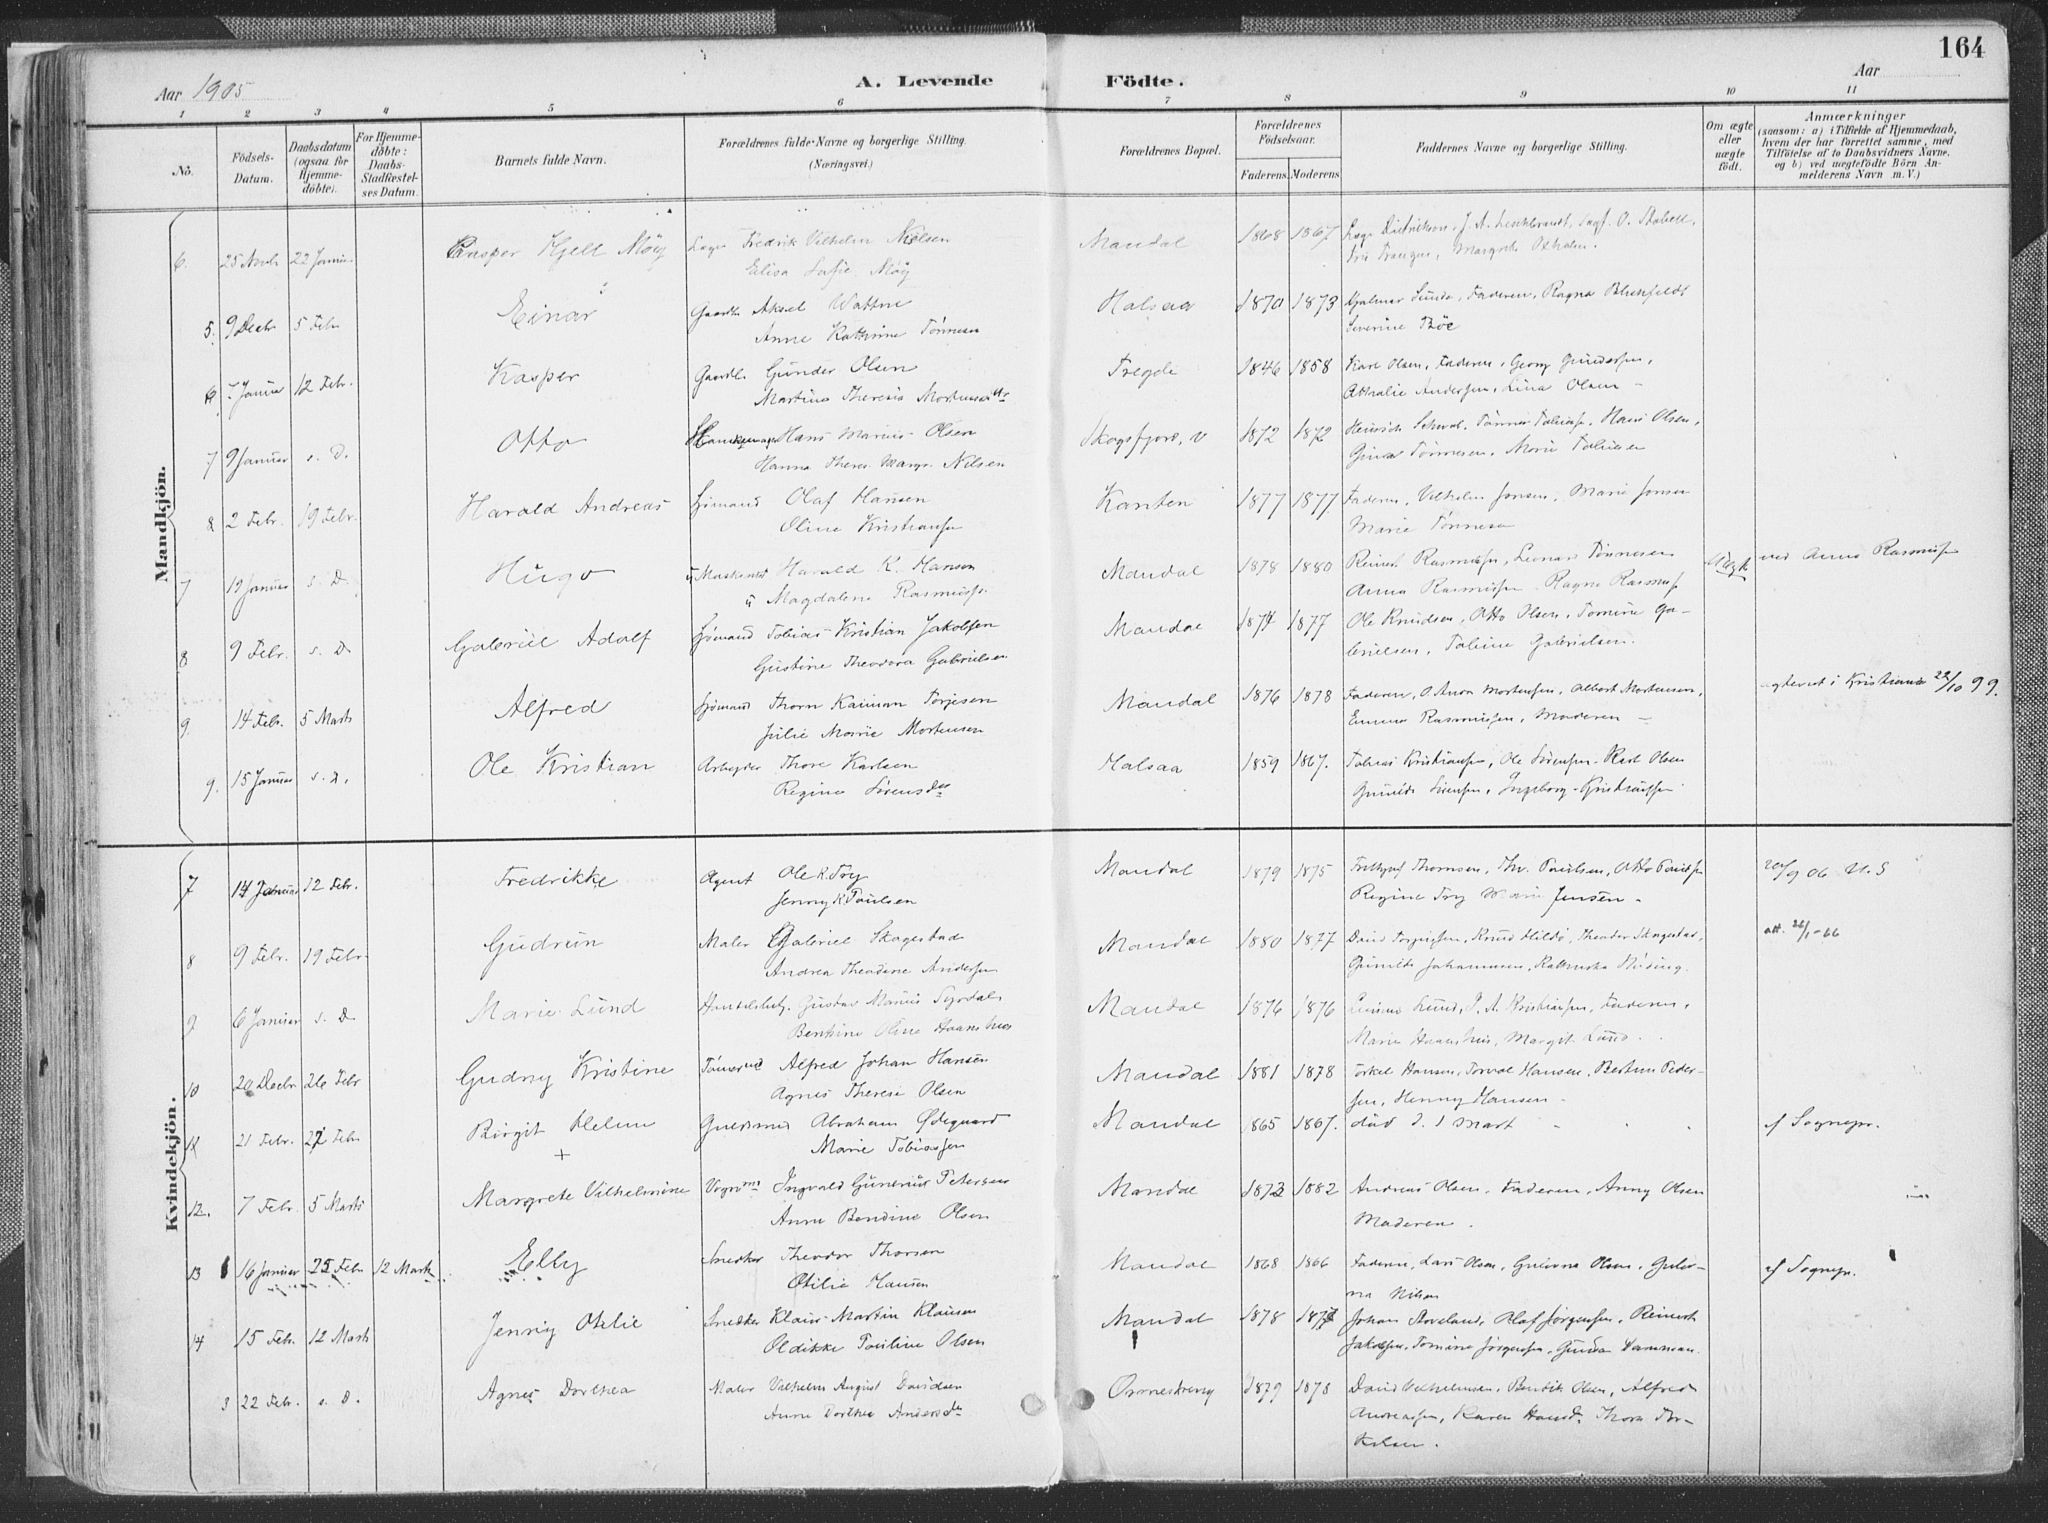 164
Aar 1905
A. Levende Födte.
Aar
1 2 3 4 5 6 7 8 9 10 11
No.
Födsels-Datum.
Daabsdatum (ogsaa for Hjemmedöbte).
For Hjemmedöbte: Daabs-Stadfæstelses Datum.
Barnets fulde Navn.
Forældrenes fulde Navne og borgerlige Stilling. (Næringsvei.)
Forældrenes Bopæl.
Forældrenes Födselsaar.
Faderens Moderens
Faddernes Navne og borgerlige Stilling.
Om ægte eller uægte födt.
Anmærkninger (saasom: a) i Tilfælde af Hjemmedaab, hvem der har forrettet samme, med Tilföielse af to Daabsvidners Navne, og b) ved uægtefödte Börn Anmelderens Navn m. V.)
Mandkjön.
6. 25 Novb 22 Januar Casper Kjell Møÿ Fredrik Vilhelm Nielsen Mandal 1868 1867
Elisa Sofie Møÿ
5. 9 Decbr 5 Febr Einar Gaardbr Aksel Wattne Halsaa 1870 1873 Hjalmar Lunde, Faderen, Ragna Blichfeldt
Anne Kathrine Tønnesen Severine Bøe
6 Januar 12 Febr. Kasper Gaardbr Gunder Olsen Tregde 1846 1858 Karl Olsen, Faderen, Georg Gundersen,
Martine Theresia Mortensdtr Athalie Andersen, Lina Olsen
7 9 Januar s. D. Otto Hans Marius Olsen Skogsfjord, v 1872 1872 Tønnes Tobiasf, Hans Olsen,
Hanna Theres Margr. Nilsen Gina Tønnesen, Marie Tobiasen
8 2 Febr. 19 Febr. Harald Andreas Sjømand Olaf Hansen Kanten 1877 1877 Faderen, Vilhelm Jensen, Marie Jensen
Oline Kristiansen Marie Tønnesen
7 19 Januar s. D. Hugo Harald K. Hansen Mandal 1878 1880 Reinert Rasmussen, Leonard Tønnesen Uægte ved Anna Rasmussen
u Magdalene Rasmussen Anna Rasmussen Ragna Rasmussen
8 9 Febr. s. D. Gabriel Adolf Sjømand Tobias Kristian Jakobsen Mandal 1874 1877 Ole Knudsen, Otto Olsen, Tomine Ga-
Gustine Theodora Gabrielsen brielsen, Tobine Gabrielsen.
9 14 Febr. 5 Marts Alfred Sjømand Thorn Kaiman Torjesen Mandal 1876 1878 Faderen, O. Anon Mortensen, Albert Mortensen, ægteviet i Kristiania 22/10 99.
Julie Marie Mortensen Emma Rasmussen, Moderen
9. 15 Januar s. d. Ole Kristian Arbeyder Thore Karlsen Halsaa 1859 1867. Tobias Kristiansen, Ole Sørensen, Karl Olsen
Regine Sørensdtr Gunilde Sørensen, Ingeborg Kristiansen
Kvindekjön.
7 14 Januar 12 Febr. Fredrikke Agent Ole K Try Mandal 1879 1875 Frithjof Thomsen, Th. Paulsen, Otto Paulsen 20/9 06 U.S
Jenny K Paulsen Regine Try Marie Jensen.
8 9 Febr. 19 Febr. Gudrun Maler Gabriel Skagestad Mandal 1880 1877 Knud Hildø, Theodor Skagestad, att. 26/1-66
Andrea Theodine Andersen Gunilde Johannesen,
9 6 Januar s. D Marie Lund Gustav Marius Syvdals Mandal 1876 1876 Lund, P. A. Kristiansen, Faderen,
Bentine Oline Haanshus Marie Haanshus, Margit Lund.
10 20 Decbr 26 Febr Gudny Kristine Alfred Johan Hansen Mandal 1881 1878 Torkel Hansen, Torval Hansen, Peder-
Agnes Therese Olsen sen, Henny Hansen
12 21 Febr. 27 Febr Birgit Helene Guldsmed Abraham Ødegaard Mandal 1865 1867. død d. 1 Mart af Sognepr.
+ Marie Tobiassen
12. 7 Febr. 5 Marts Margrete Vilhelmine Ingvald Gunerius Petersen Mandal 1873 1882 Andreas Olsen, Faderen, Anny Olsen
Anne Bendine Olsen Moderen.
13 16 Januar 25 Febr 12 Mart Elly Snedker Theodor Thorsen Mandal 1868 1866 Faderen, Lars Olsen, Gulovna Olsen, Gulov- af Sognepr.
Otilie Hansen na Nilsen
14 15 Febr. 12 Marts Jenny Otelie Snedker Klaus Martin Klausen Mandal 1878 1877 Johan Aaveland, Olaf Jørgensen, Reinert
Oldikke Pauline Olsen Jakobsen, Tomine Jørgensen, Gunda
3 22 Febr. s. D. Agnes Dorthea Maler Vilhelm August Davidsen Ormestrøng 1879 1878 David Vilhelmsen, Bendik Olsen, Alfred
Anne Dorthea Andersdtr Andreassen, Karen Thora Tor-
kelsen.